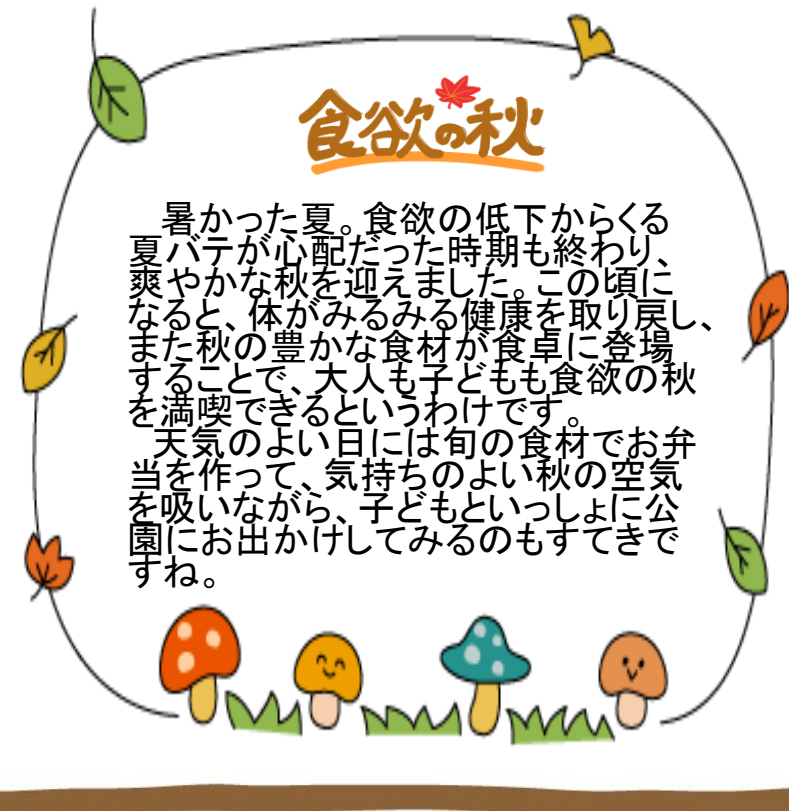 食欲の秋
　暑かった夏。食欲の低下からくる
夏バテが心配だった時期も終わり、
爽やかな秋を迎えました。この頃に
なると、体がみるみる健康を取り戻し、
また秋の豊かな食材が食卓に登場
することで、大人も子どもも食欲の秋
を満喫できるというわけです。
　天気のよい日には旬の食材でお弁
当を作って、気持ちのよい秋の空気
を吸いながら、子どもといっしょに公
園にお出かけしてみるのもすてきで
すね。